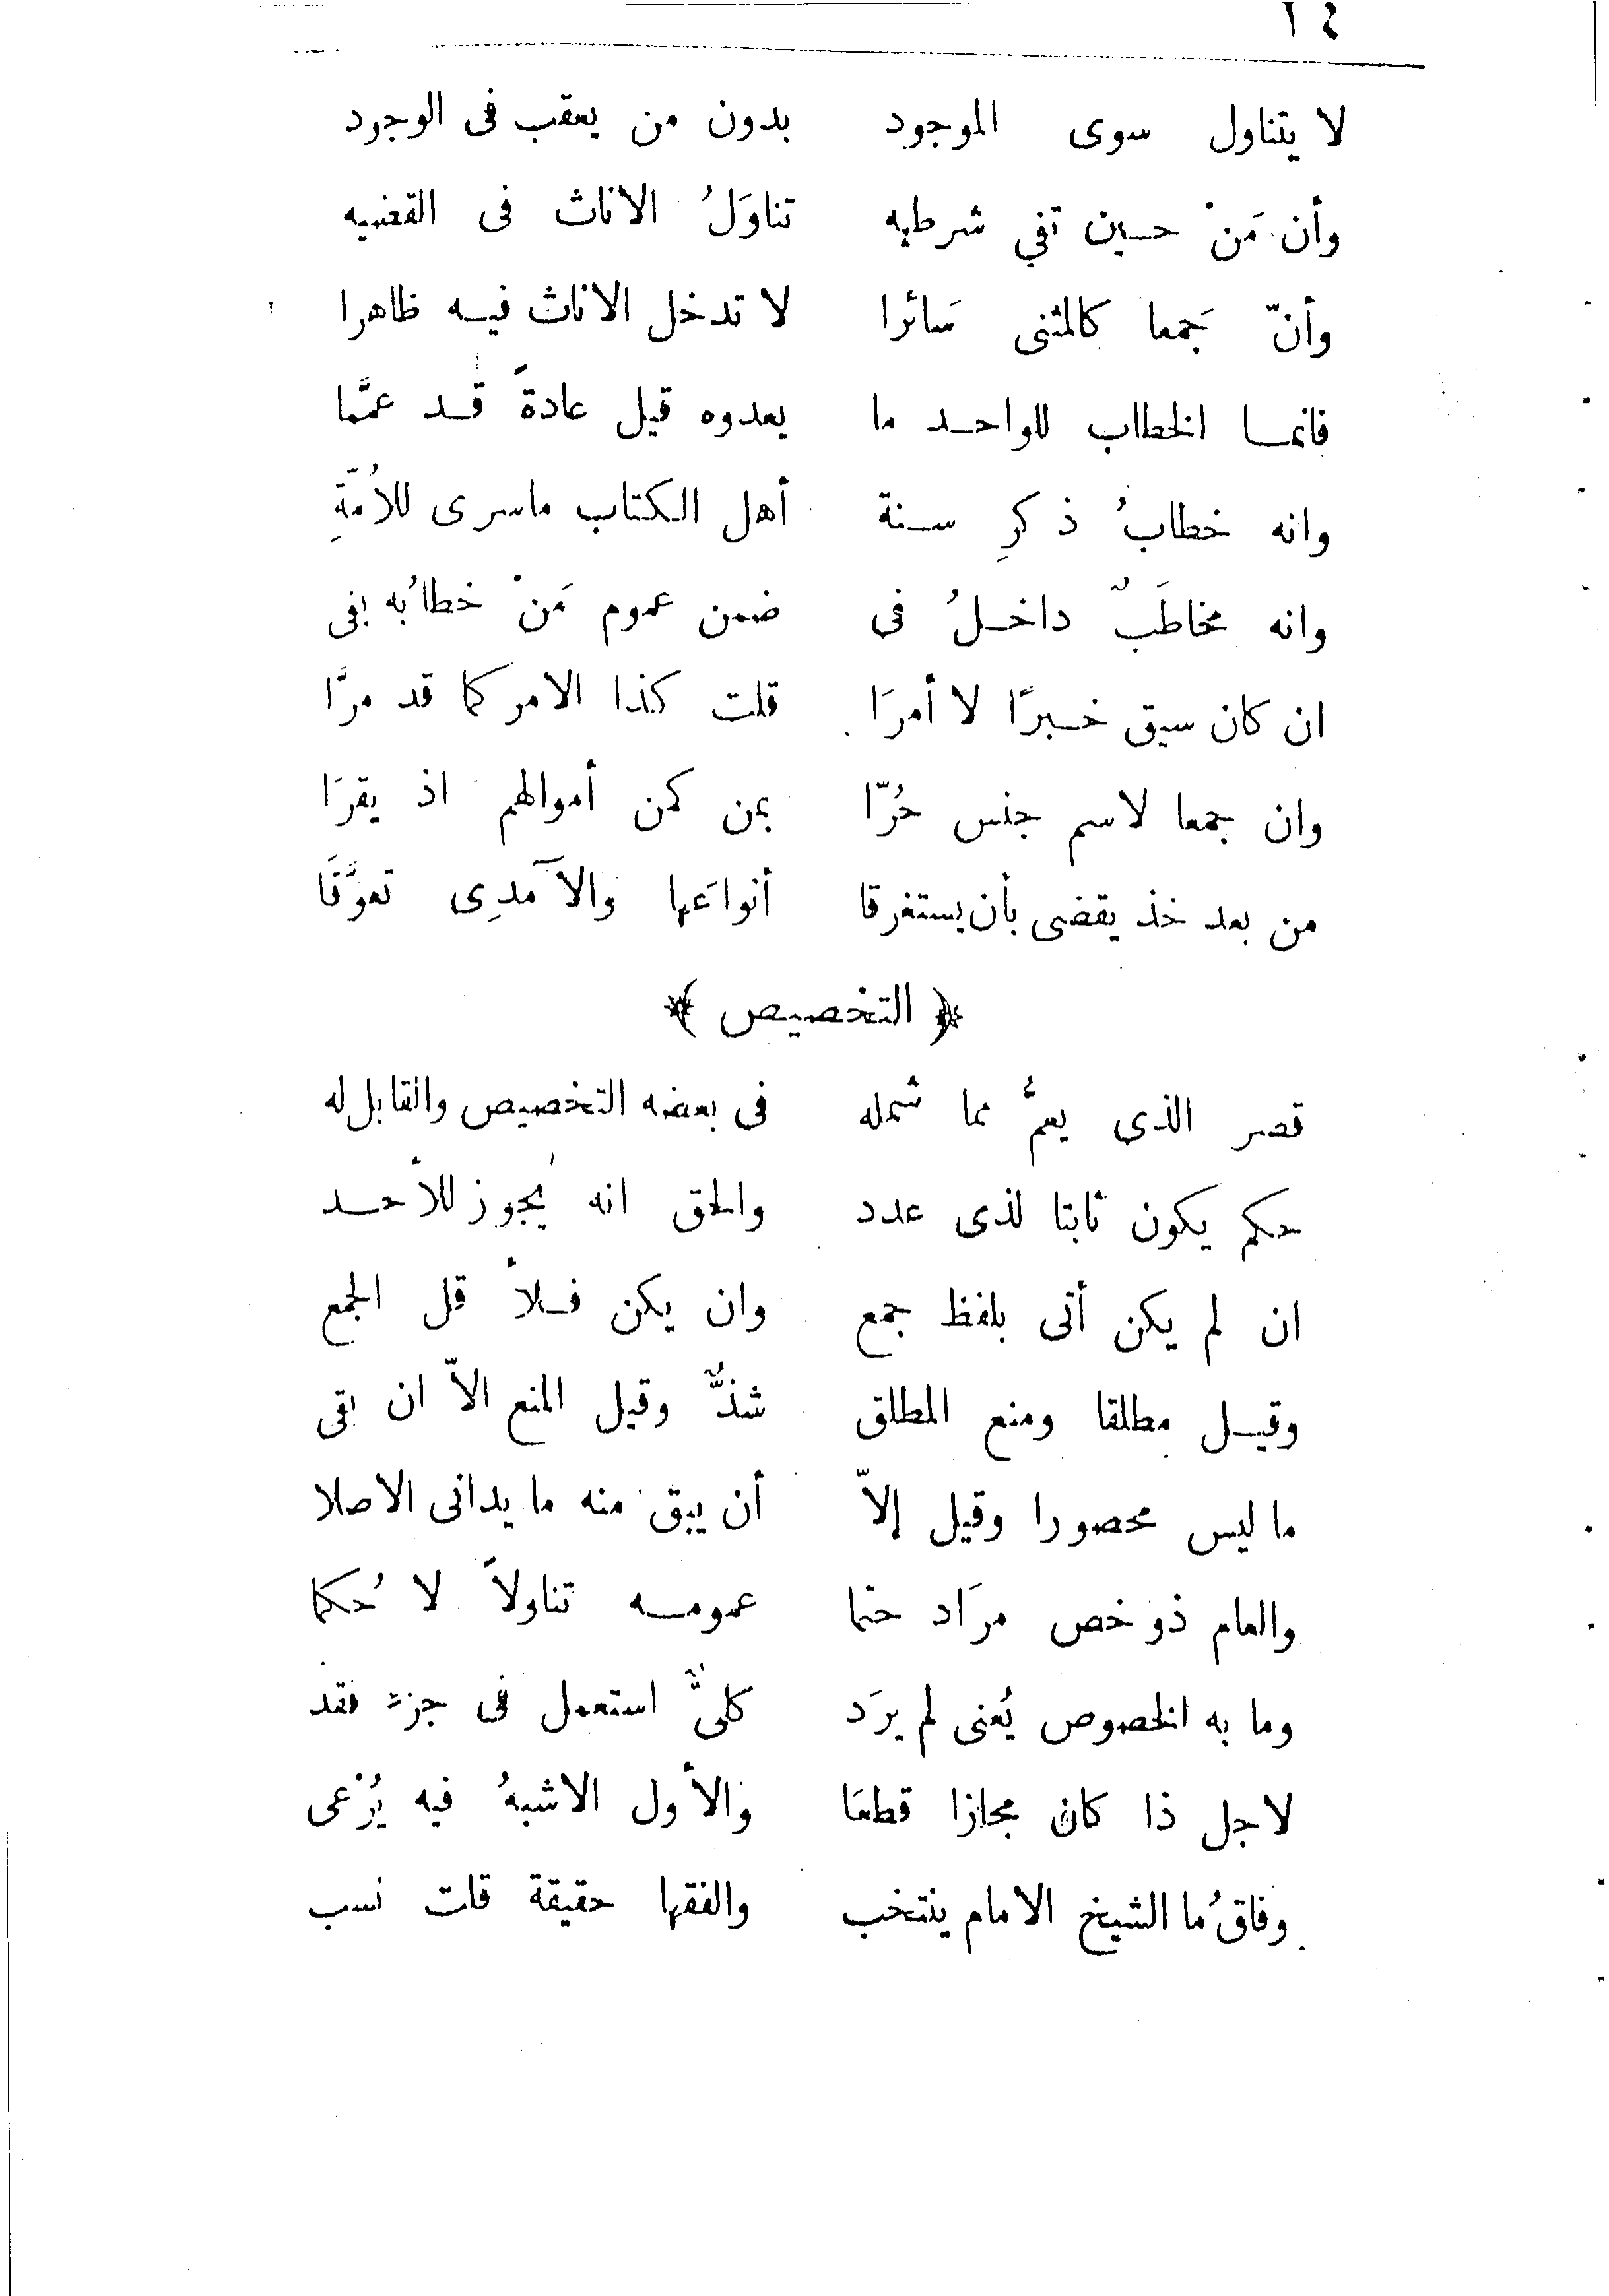 ١٤
لا يتناول سوى الموجود بدون من يعقب فى الوجود
وأن مَنْ حسين تفي شرطيه تناوَلُ الاناث فى القضيه
وأنّ جَمعا كالمثنى سَائرا لا تدخل الاناث فيه ظاهرا
فانما الخطاب للواحد ما يعدوه قيل عادةً قد عمَّما
وانه خطابُ ذكرِ سنة أهل الكتاب ماسرى للاُمّةِ
وانه مخاطَبٌ داخلُ فى ضمن عموم مَنْ خطابُه بفى
ان كان سيق خبرًا لا أمرَا قلت كذا الامر كما قد مرَّا
وان جمعا لاسم جنس حُرّا بمن كمن أموالهم اذ يقرَا
من بعد خذ يقضى بأن يستغرقا أنواعَها والآمدِى تعوَّقَا
﴿ التخصيص ﴾
قصر الذى يعمُّ مما شمله فى بعضه التخصيص والقابل له
حكم يكون ثابتا لذى عدد والحق انه يَجوز للأحد
ان لم يكن أتى بلفظ جمع وان يكن فلأقل الجمع
وقيل مطلقا ومنع المطلق شذٌّ وقيل المنع الاّ ان بقى
ما ليس محصورا وقيل إلاّ أن يبق منه ما يدانى الاصلا
والعام ذو خص مرَاد حتما عمومه تناولاً لا حُكما
وما به الخصوص يُعنى لم يرَد كلىٌّ استعمل فى جزء فقد
لاجل ذا كان مجازا قطعَا والأول الاشبهُ فيه يُرْعى
وفاقُ ما الشيخ الامام ينتخب والفقها حقيقة قلت نسب